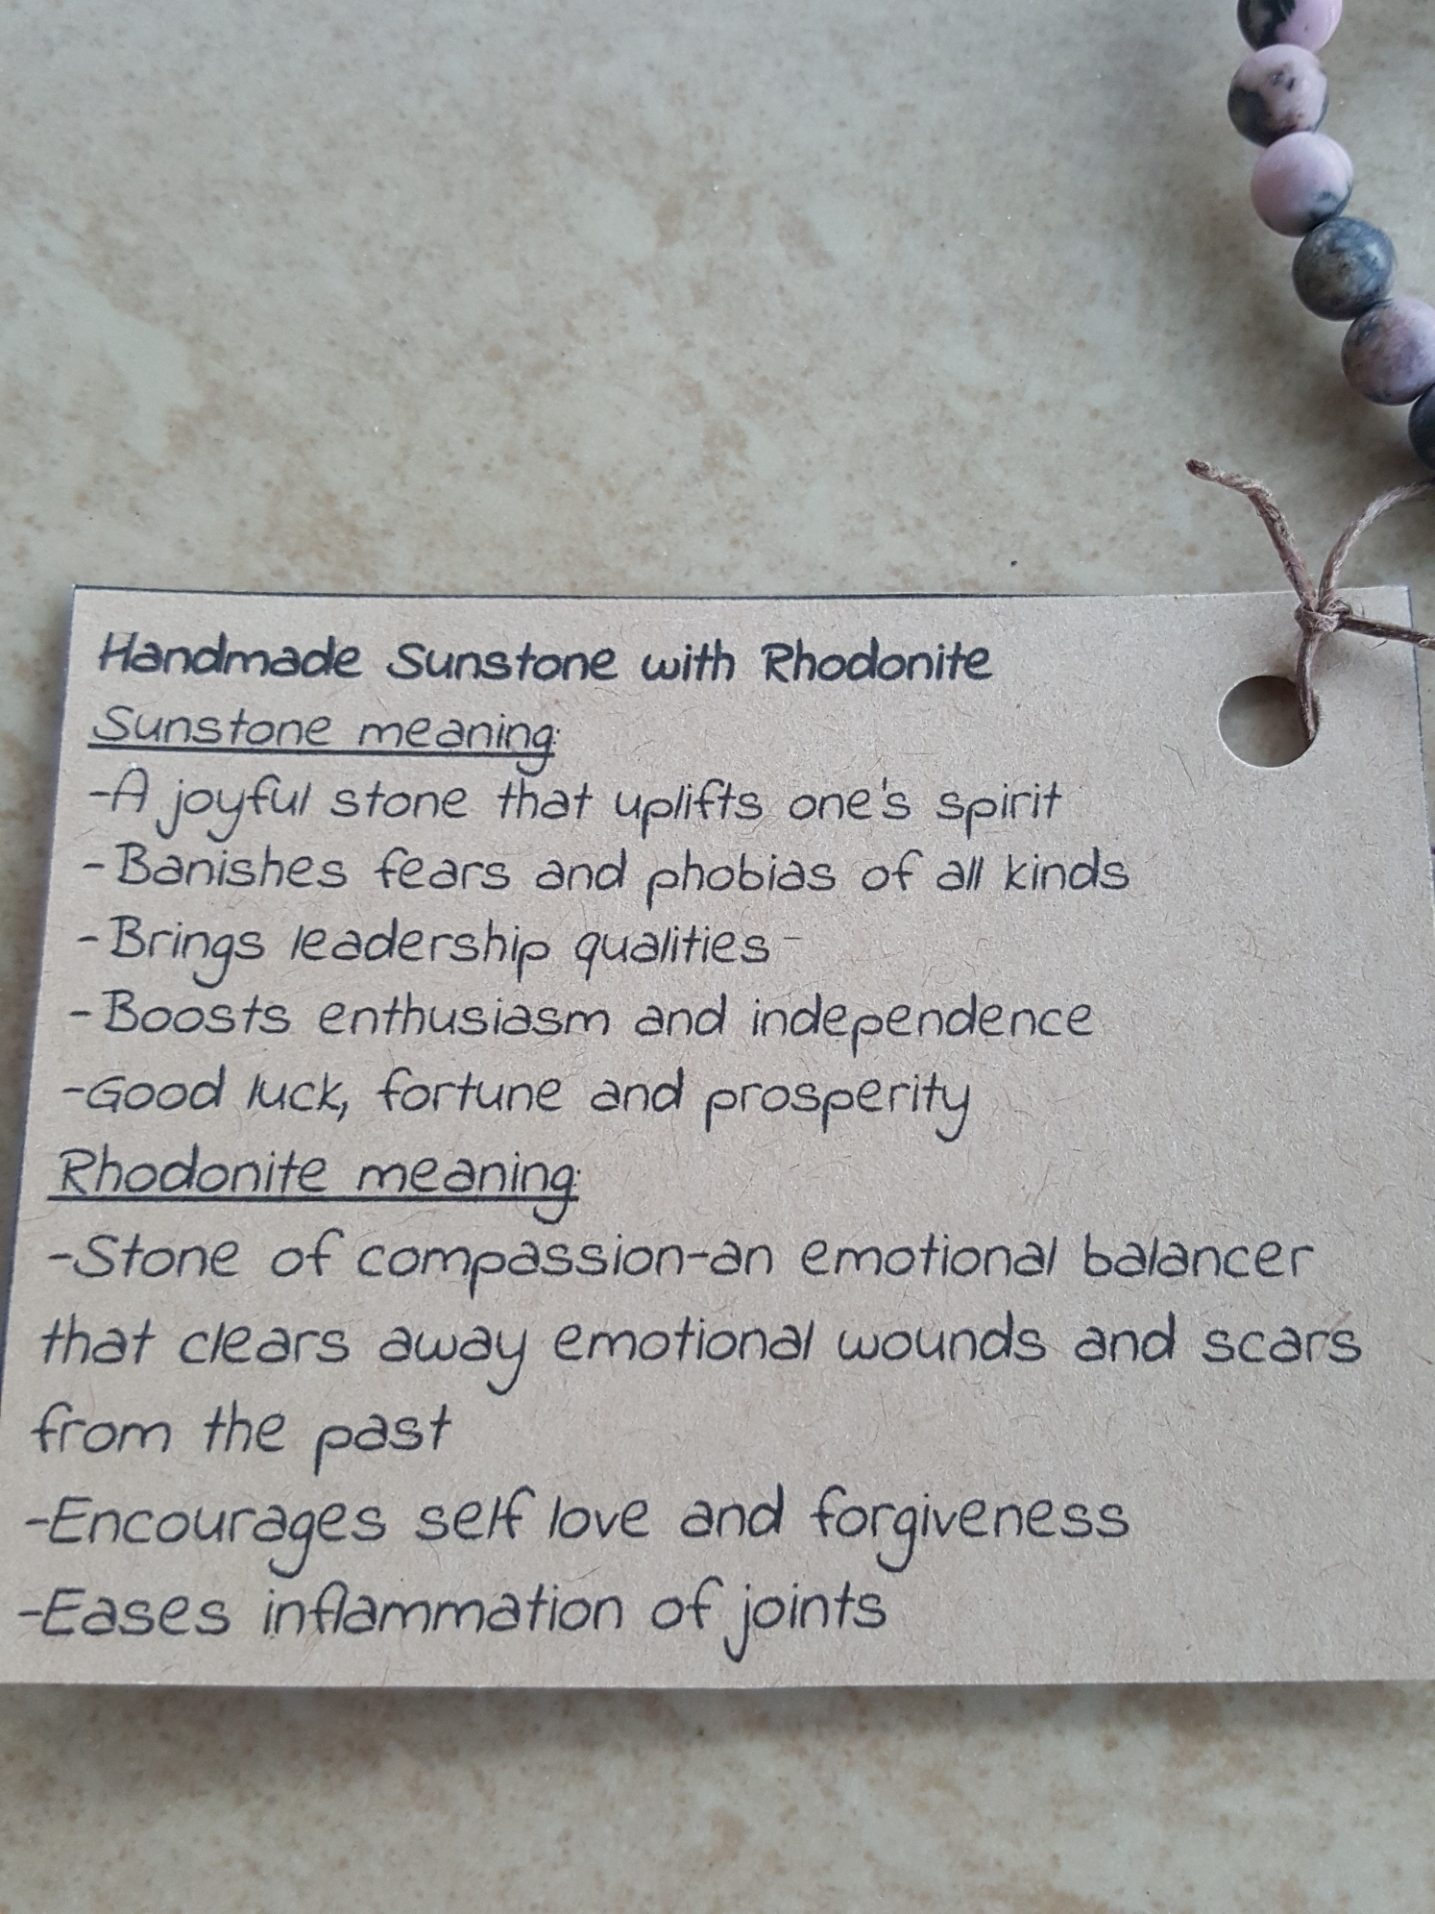 Handmade Sunstone with Rhodonite
Sunstone meaning:
-A joyful stone that uplifts one's spirit
-Banishes fears and phobias of all kinds
-Brings leadership qualities-
-Boosts enthusiasm and independence
-Good luck, fortune and prosperity
Rhodonite meaning:
-Stone of compassion-an emotional balancer
that clears away emotional wounds and scars
from the past
-Encourages self love and forgiveness
-Eases inflammation of joints